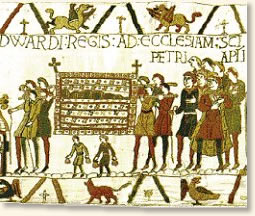 DWARDI:REGIS:AD:ECCLESIAM:SCI
PETRI APLI